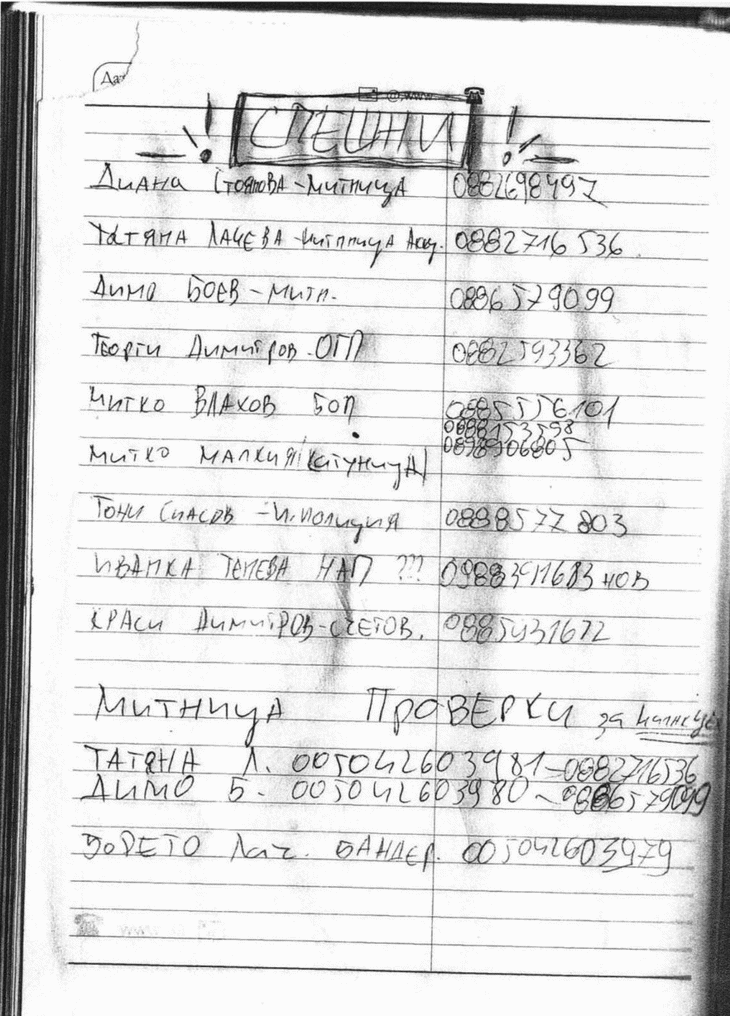 Да
@ www
СПЕШНИ
ДИАНА СТОЯНОВА - МИТНИЦА 0882698497
ТАТЯНА ЛАЧЕВА - МИТНИЦА Акц. 0882716536
ДИМО БОЕВ - МИТН. 0886579099
ГЕОРГИ ДИМИТРОВ. ОГП 0882593362
МИТКО ВЛАХОВ БОП 0885556101
0888153598
МИТКО МАЛКИЯ (КАТУНИЦА) 0898906805
ТОНИ СПАСОВ - И. ПОЛИЦИЯ 0888577803
ИВАНКА ТЕНЕВА НАП ??? НОВ
КРАСИ ДИМИТРОВ - СЧЕТОВ. 0885431672
МИТНИЦА ПРОВЕРКИ за
ТАТЯНА Л. 005042603981 - 0882716536
ДИМО Б. 005042603980 - 0886579099
БОРЕТО Лач. БАНДЕР. 005042603979